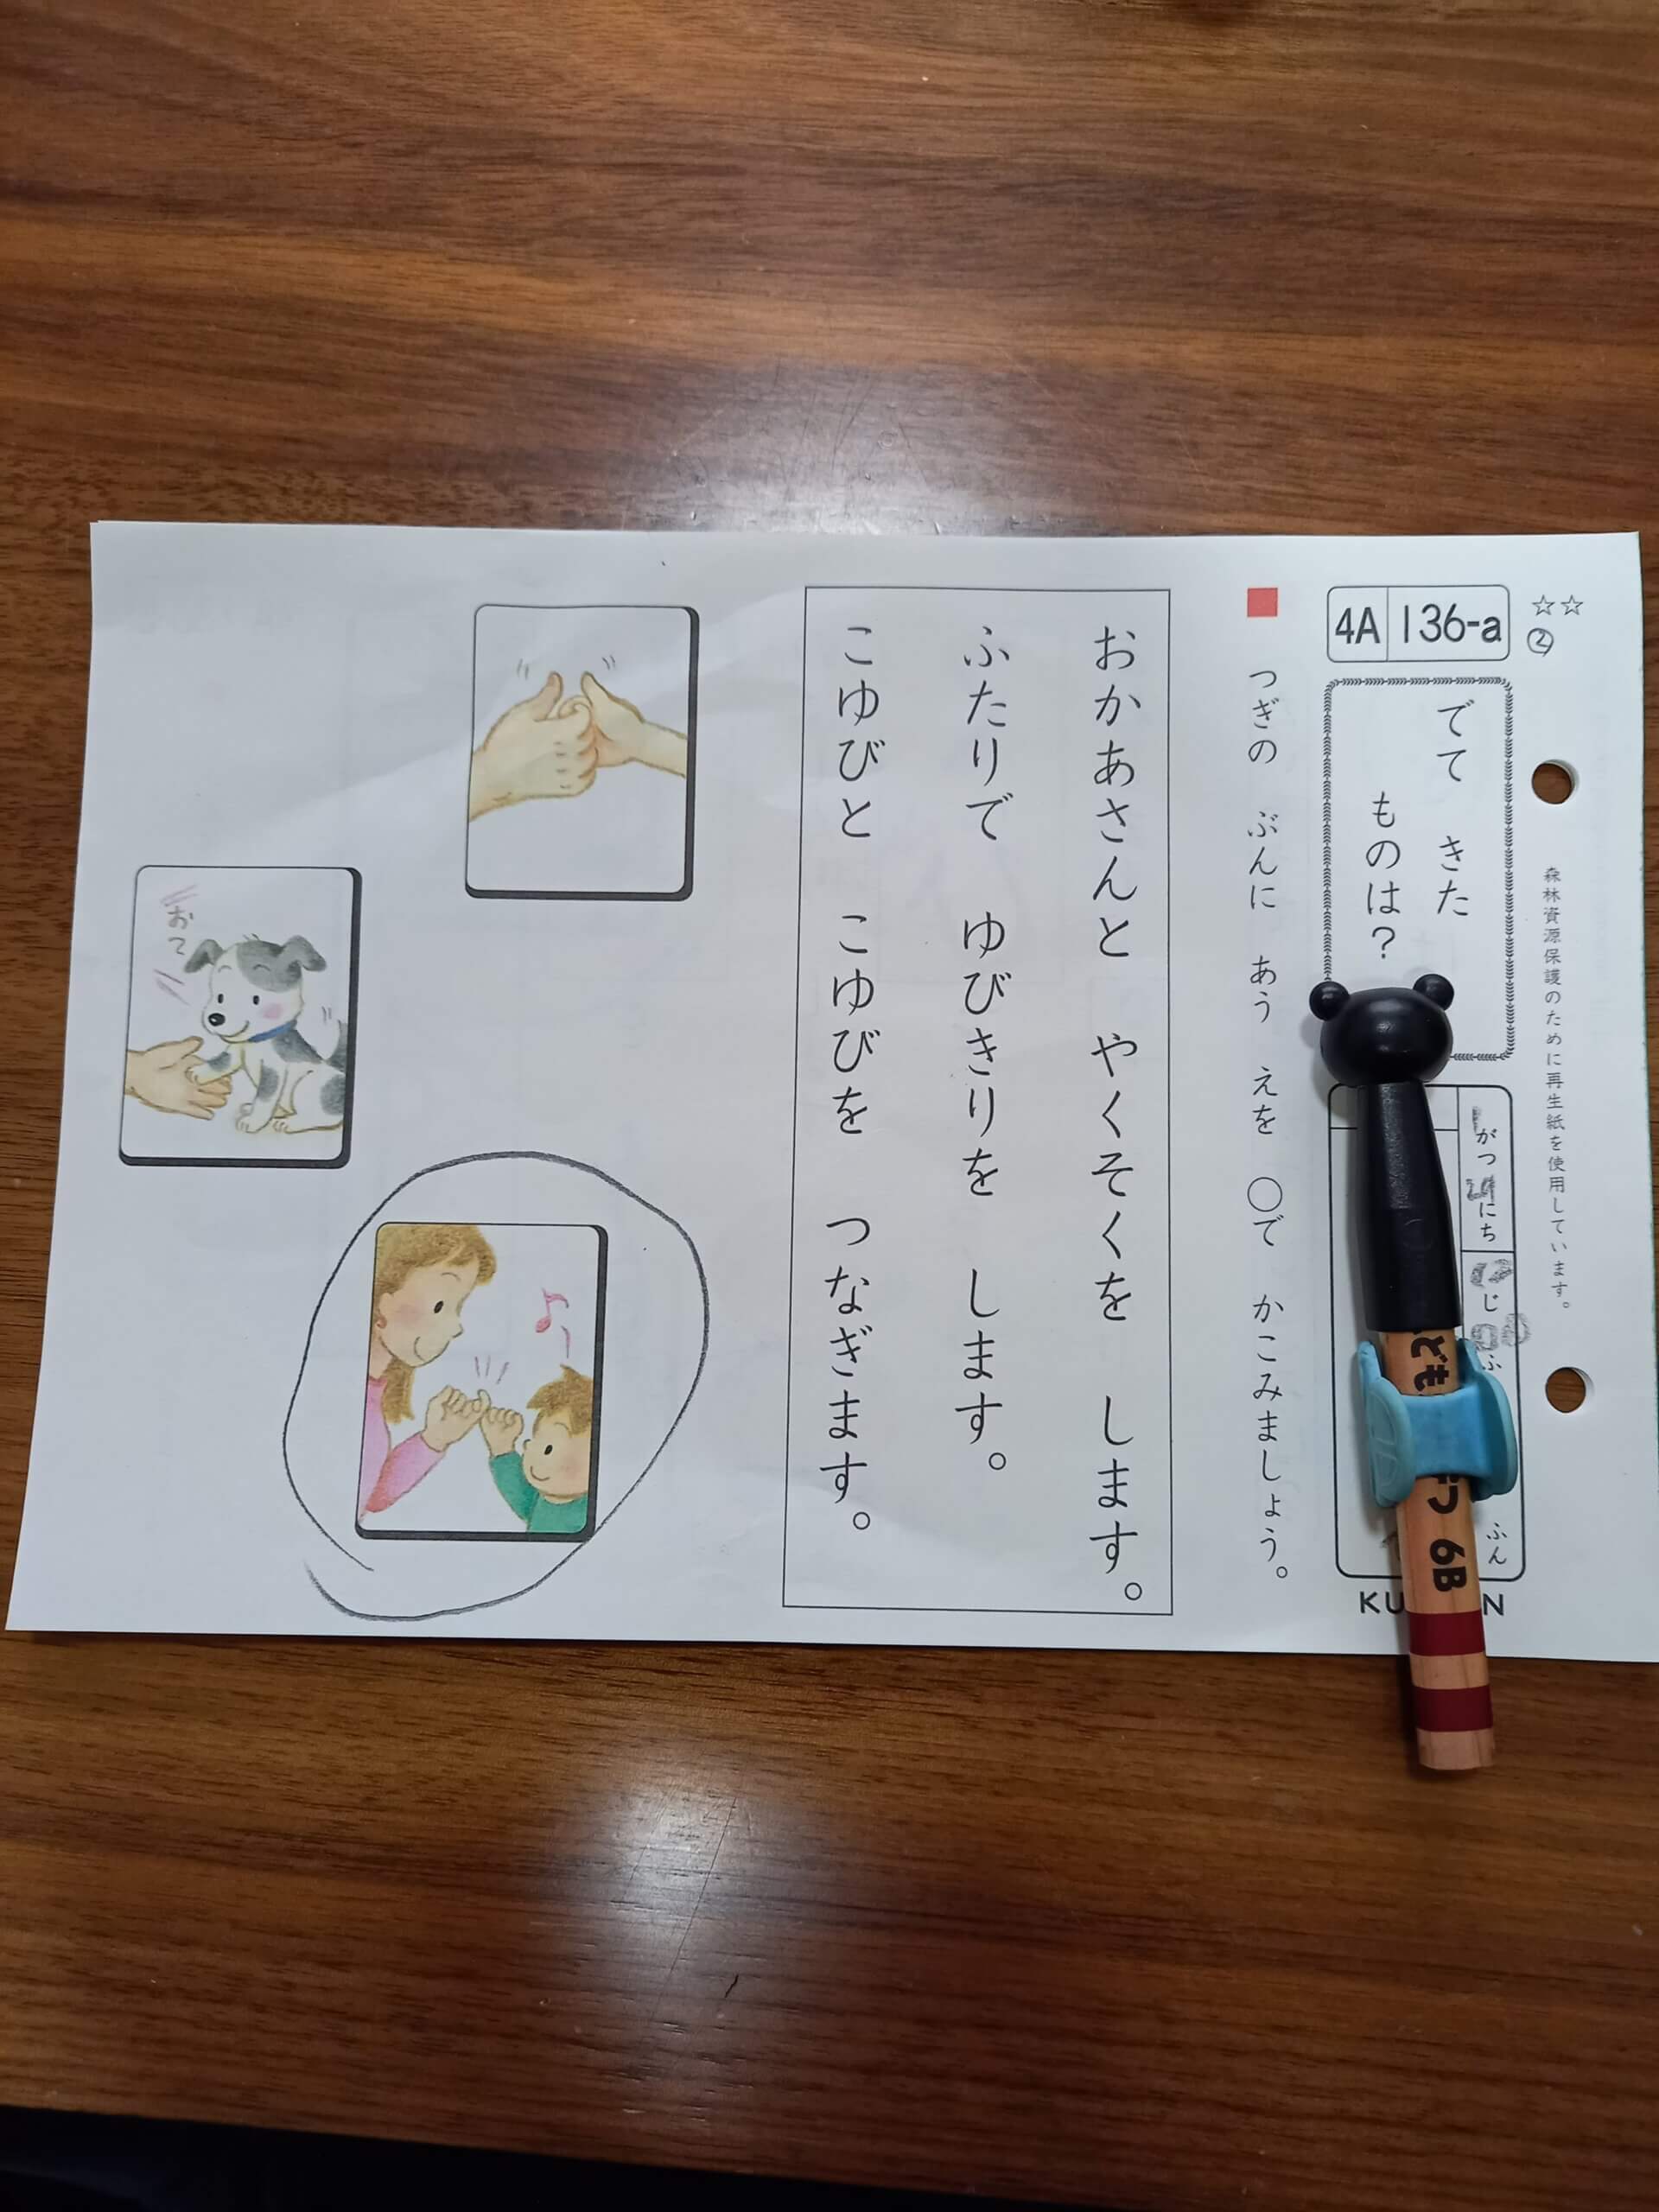 森林資源保護のために再生紙を使用しています。
☆☆
②
4A 136-a
でて きた
ものは？
がつ にち
じ ふ
ふん
KU N
ども 6B
つぎの ぶんに あう えを ○で かこみましょう。
おかあさんと やくそくを します。
ふたりで ゆびきりを します。
こゆびと こゆびを つなぎます。
おて